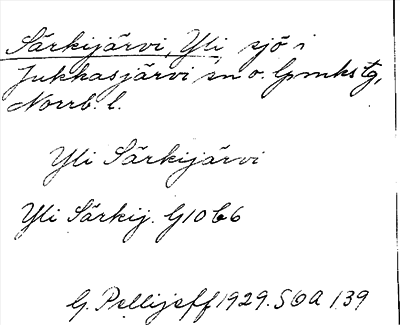 Särkijärvi, Yli, sjö i
Jukkasjärvi sn o. lpmkstg,
Norrb. l.
Yli Särkijärvi
Yli Särkij. G10 C6
G. Pellijeff 1929. SOA 139